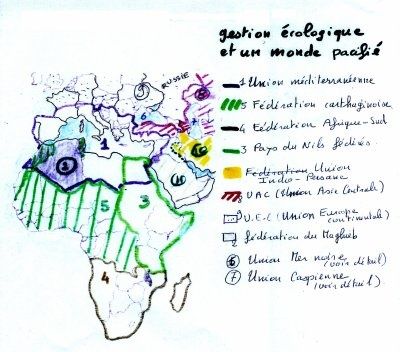 gestion écologique
et un monde pacifié
RUSSIE
1 Union méditerranéenne
5 Fédération carthaginoise
4 Fédération Afrique-Sud
3 Pays du Nils fédérés
Fédération Union
Indo-Persane
UAC (Union Asie Centrale)
U.E.C (Union Europe
continentale)
fédération du Maghreb
6 Union Mer noire
(voir détail)
7 Union Caspienne
(voir détail)
6
1
2
10
5
3
4